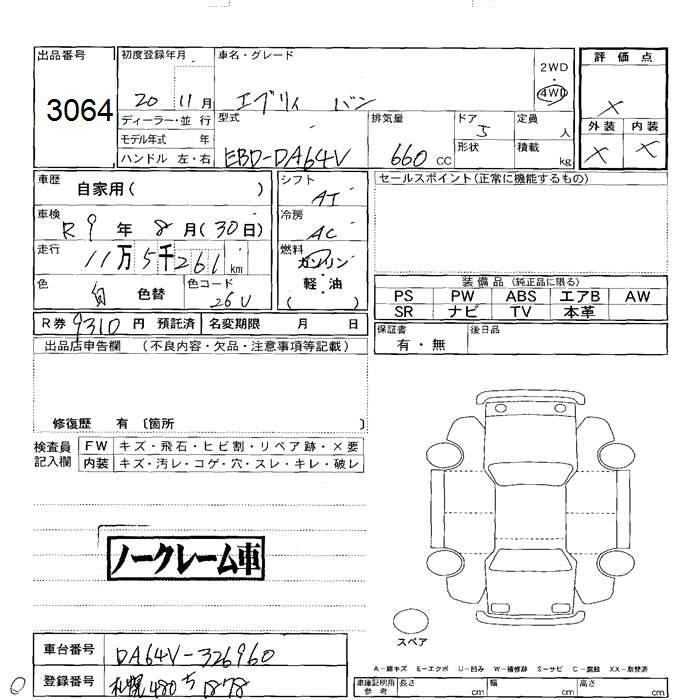 出品番号
3064
初度登録年月
20 11月
ディーラー・並 行
モデル年式 年
ハンドル 左・右
車名・グレード
エブリィ バン
2WD
4WD
型式
EBD-DA64V
排気量
660 CC
ドア
5
形状
定員
人
積載
kg
評 価 点
×
外装 内装
× ×
車歴
自家用( )
車検
R9 年 8 月 (30日)
走行
11万 5千 261 km
色
白 色替
色コード
26U
シフト
AT
冷房
AC
燃料
ガソリン
軽・油
( )
セールスポイント(正常に機能するもの)
装 備 品 (純正品に限る)
PS PW ABS エアB AW
SR ナビ TV 本革
保証書
有・無
後日品
R券 9310 円 預託済 名変期限 月 日
出品店申告欄 (不良内容・欠品・注意事項等記載)
修復歴 有 〔箇所 〕
検査員
記入欄
FW キズ・飛石・ヒビ割・リペア跡・×要
内装 キズ・汚レ・コゲ・穴・スレ・キレ・破レ
ノークレーム車
スペア
車台番号 DA64V-326960
登録番号 札幌480 ち 1878
A-線キズ E-エクボ U-凹み W-補修跡 S-サビ C-腐蝕 XX-取替済
車庫証明用
参 考
長さ cm 幅 cm 高さ cm